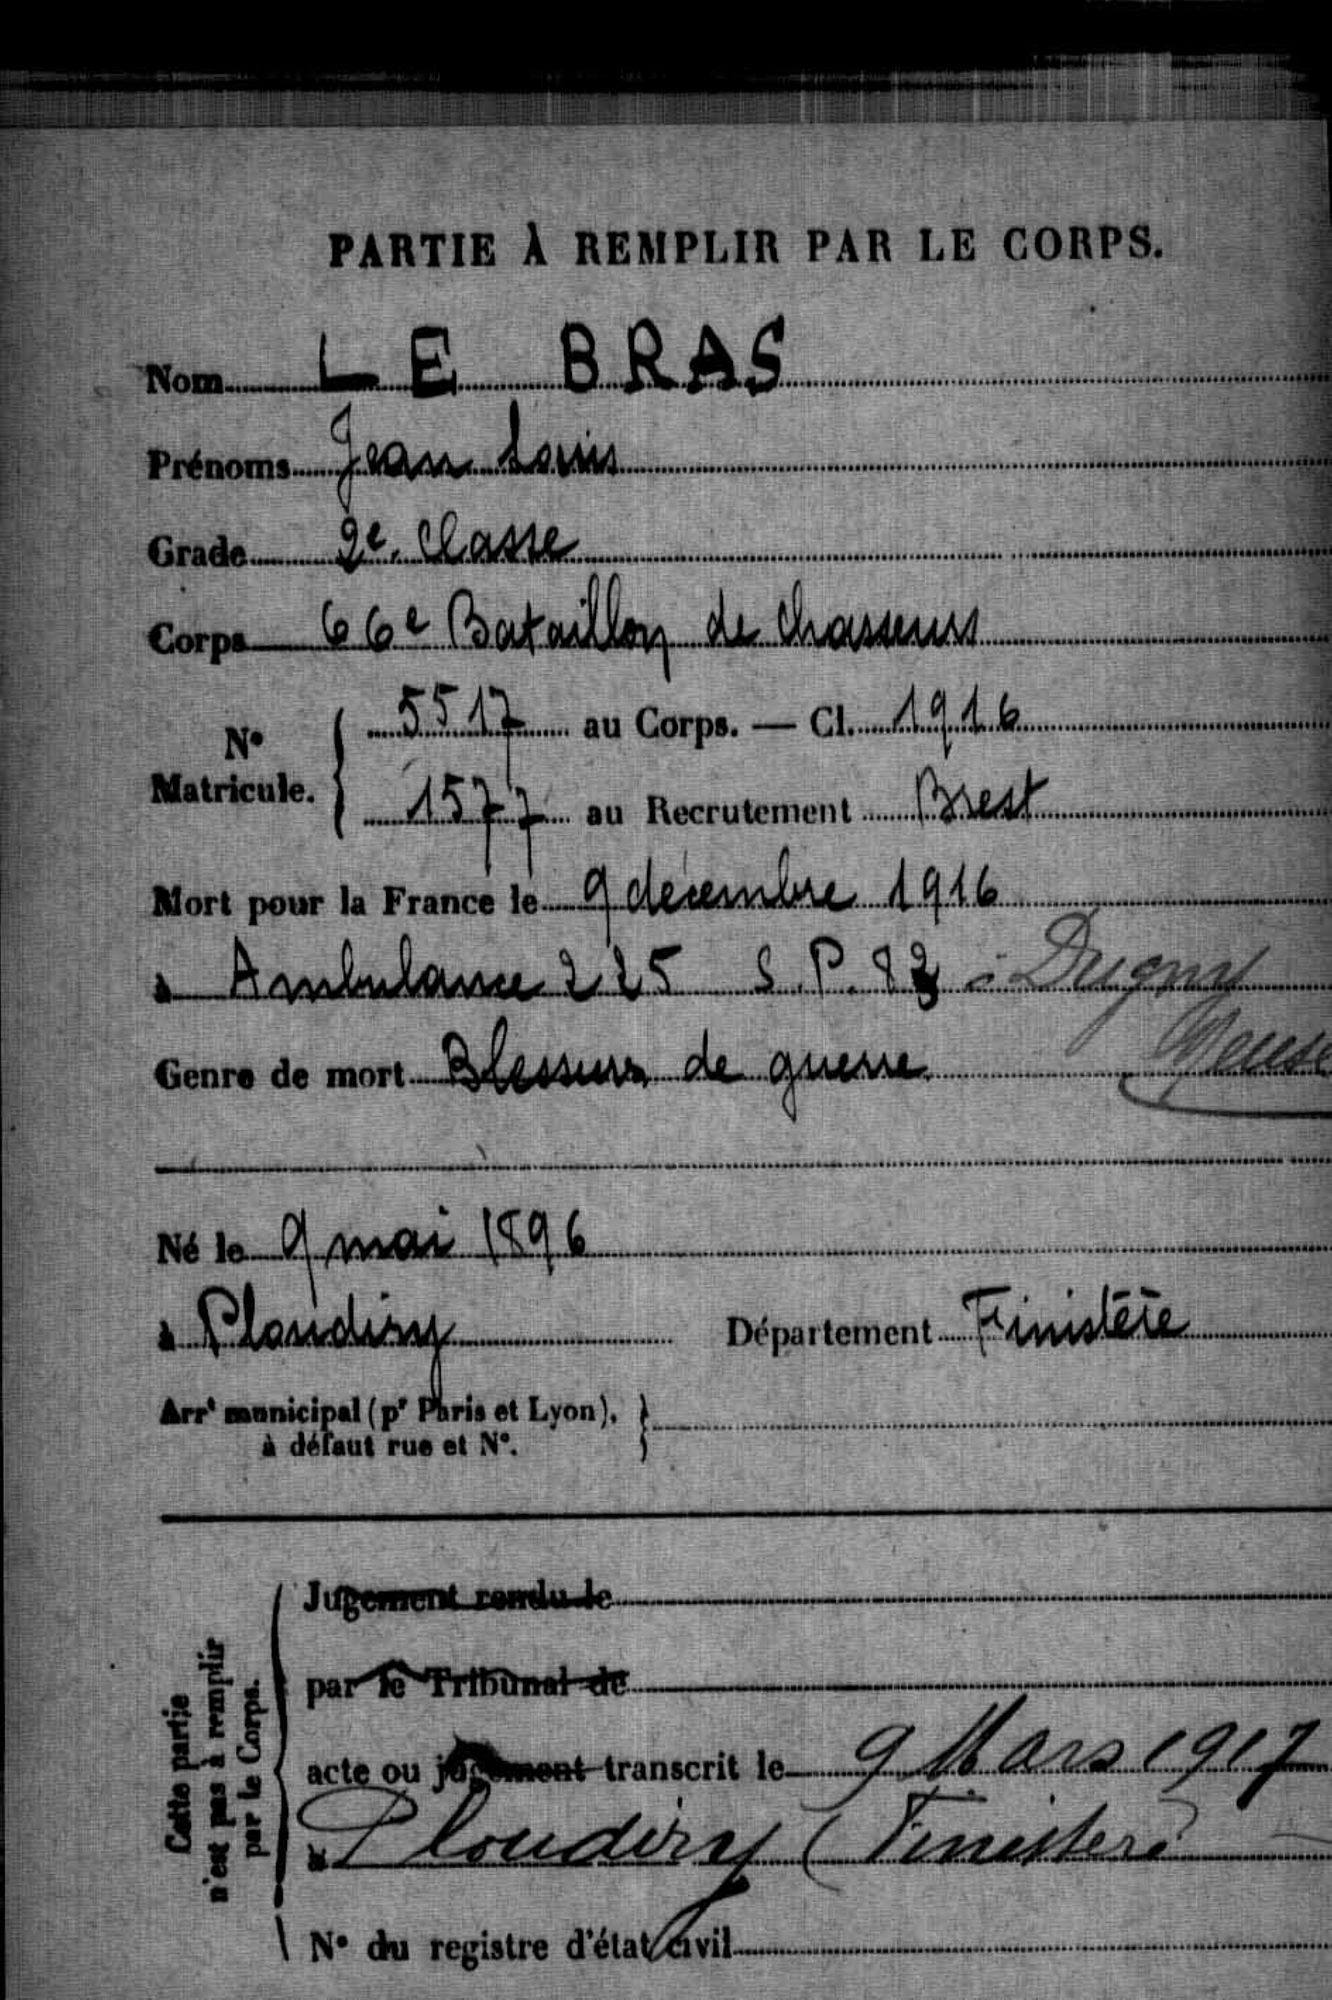 PARTIE À REMPLIR PAR LE CORPS.
Nom LE BRAS
Prénoms Jean Louis
Grade 2e. Classe
Corps 66e Bataillon de chasseurs
N° Matricule. { 5517 au Corps. — Cl. 1916
1577 au Recrutement Brest
Mort pour la France le 9 décembre 1916
à Ambulance 225 S.P. 82 à Dugny
Meuse
Genre de mort Blessures de guerre
Né le 9 mai 1896
à Ploudiry Département Finistère
Arrt municipal (pr Paris et Lyon), }
à défaut rue et N°.
Cette partie
n'est pas à remplir
par le Corps.
Jugement rendu le
par le Tribunal de
acte ou jugement transcrit le 9 Mars 1917
à Ploudiry (Finistère
N° du registre d'état civil